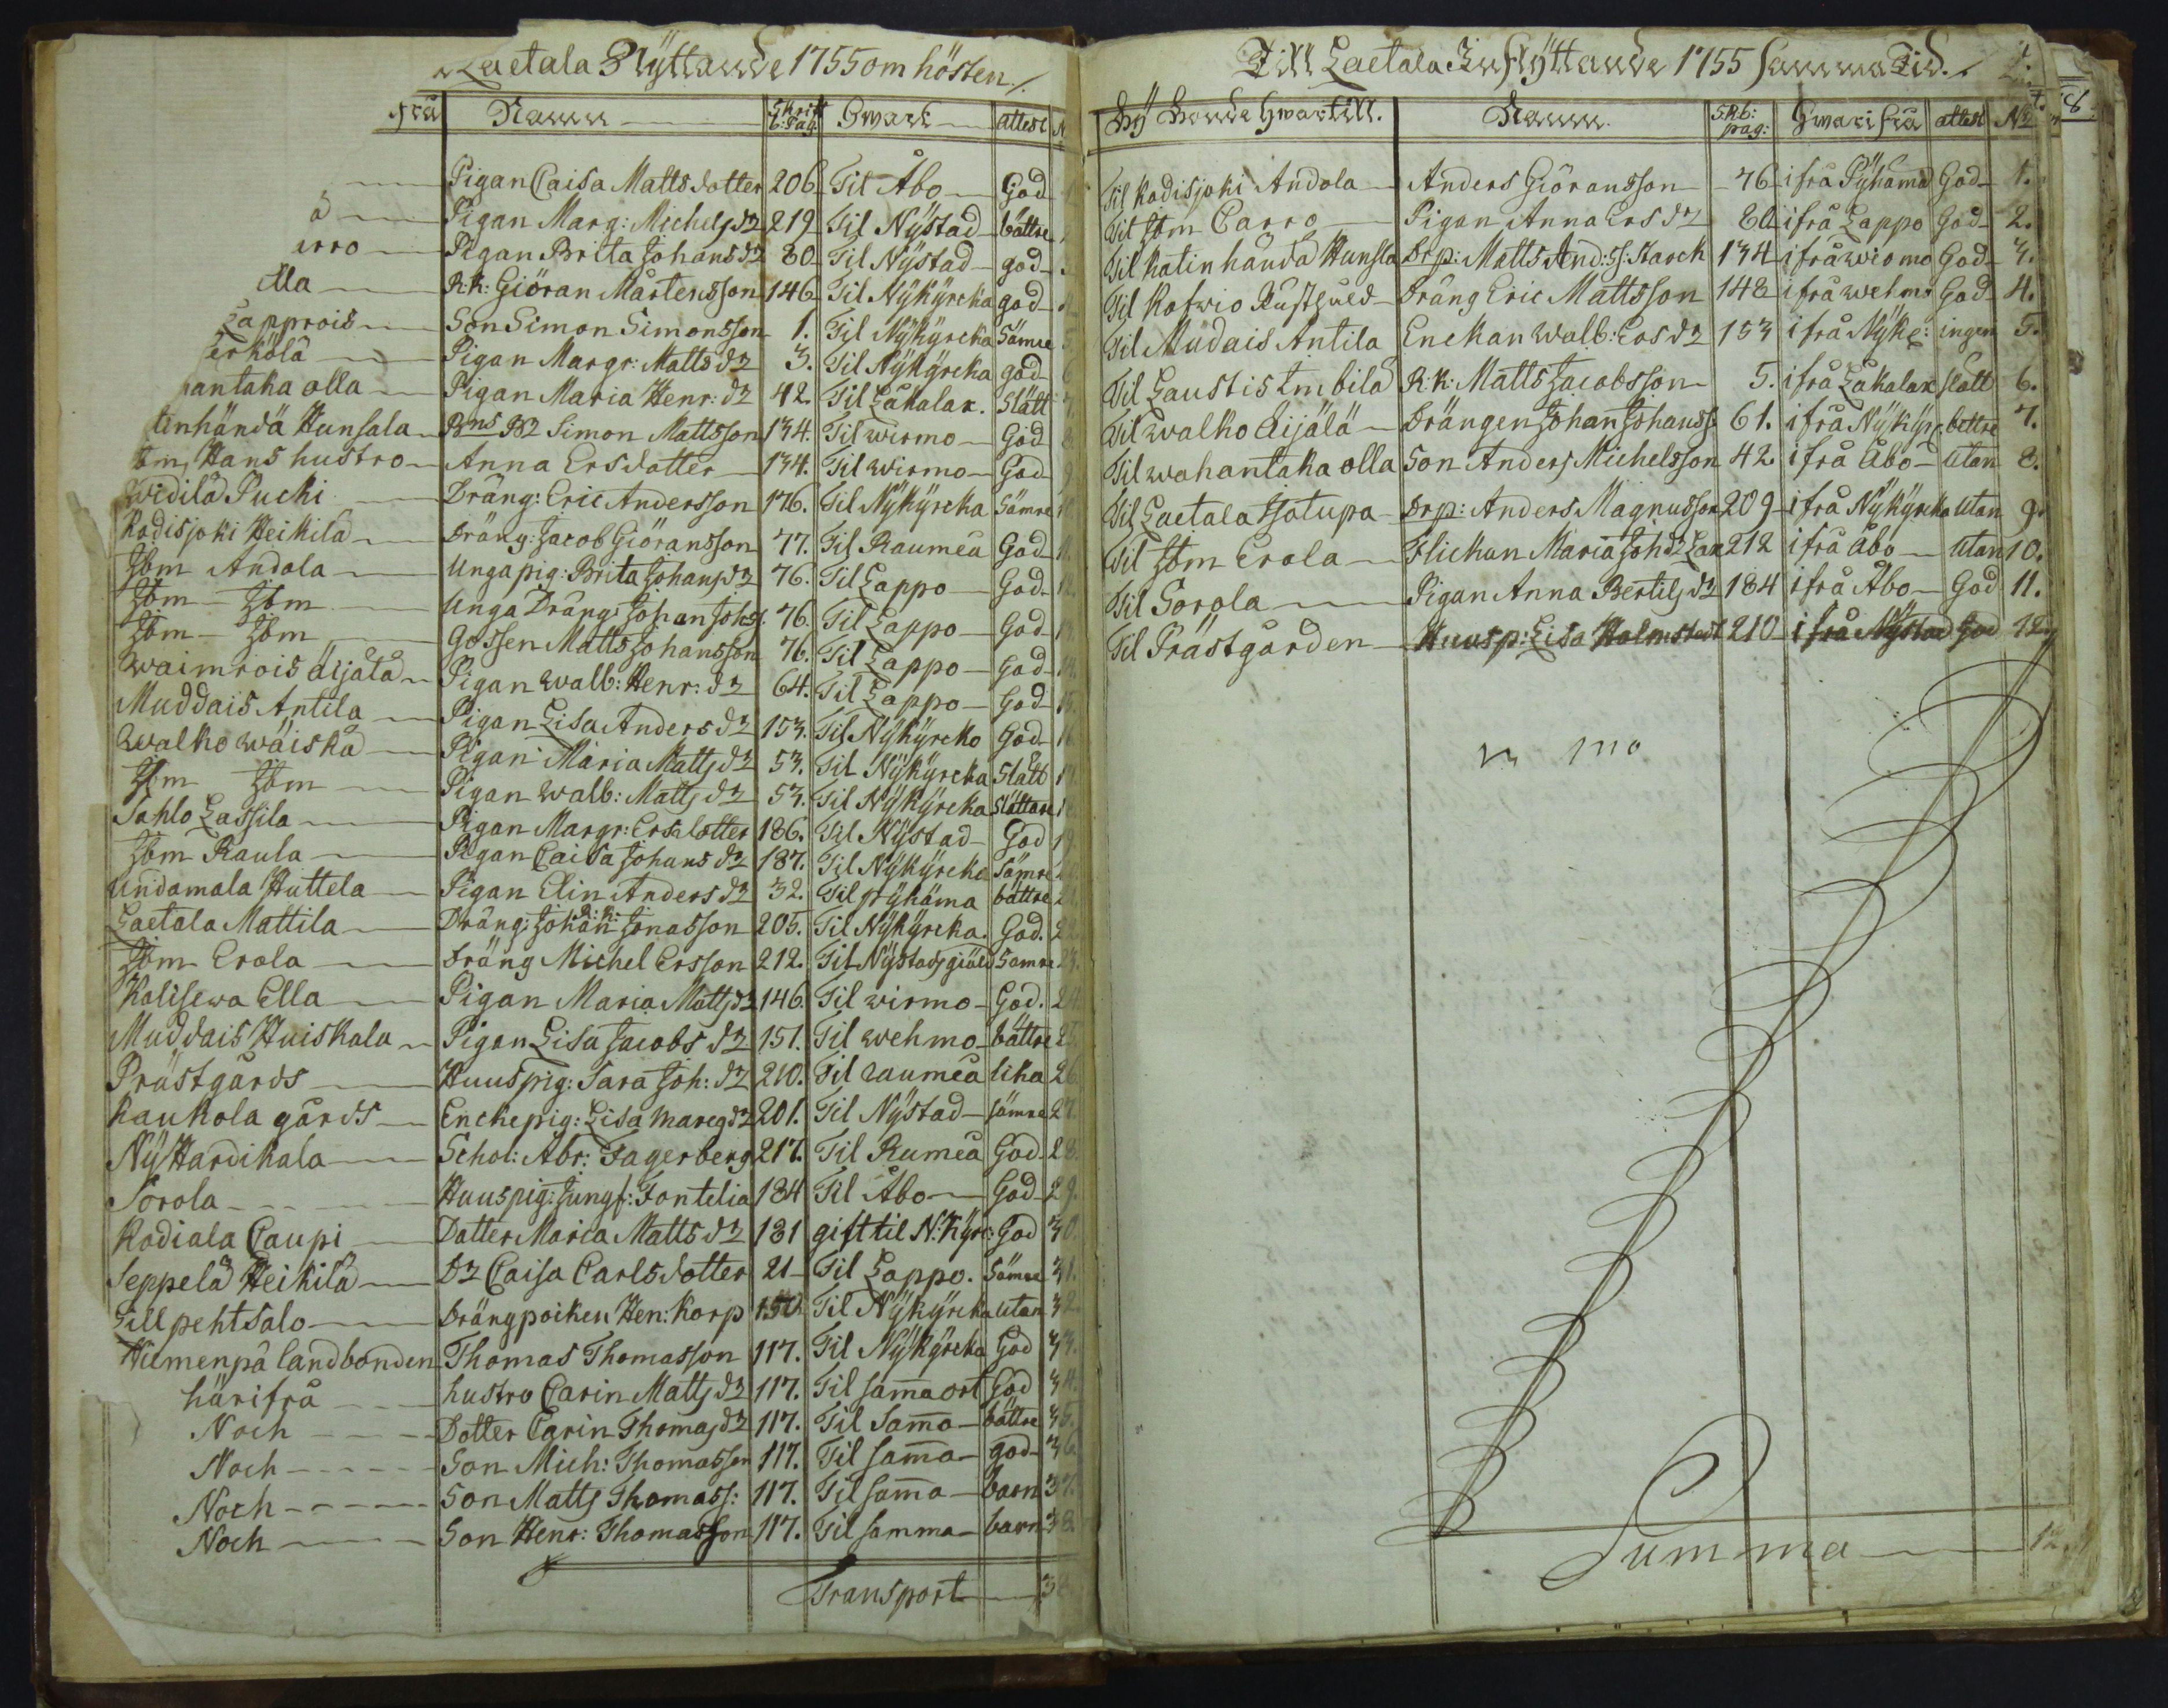 Laetala Flyttande 1755 om hösten.
frå Namn Skrift b: Pag. Hwart attest N
Pigan Caisa Mattsdotter 206 Til Åbo God 1
Pigan Marg: Michelsdr 219 Til Nÿstad bättre
erro Pigan Brita Johansdr 80 Til Nÿstad god
ella R:k: Giöran Mårtensson 146 Til Nÿkÿrcka god
Lapprois Son Simon Simonsson 1. Til Nÿkÿrcka Sämre 5.
erkölä Pigan Margr: Mattsdr 3. Til Nÿkÿrcka god 6
hantaka olla Pigan Maria Henr: dr 42. Til Låkalax. Slätt 7.
tinhändä Hunsala Simon Mattsson 134. Til wirmo God 8
Hans hustro Anna Ersdotter 134. Til wirmo God 9
widilä Pucki Dräng: Eric Andersson 176. Til Nÿkÿrcka Sämre 10
Kodisjoki Heikilä Dräng: Jacob Giöransson 77. Til Raumea God 11.
Jbm Andola Unga pig: Brita Johansdr 76. Til Lappo God 12.
Jbm Jbm Unga Dräng: Johan Johss. 76. Til Lappo God 13.
Jbm Jbm Gossen Matts Johansson 76. Til Lappo God 14.
waimrois äijälä Pigan walb: Henr: dr 64. Til Lappo God 15.
Muddais Antila Pigan Lisa Andersdr 153. Til Nÿkÿrcko God 16
walko wäiskä Pigan Maria Mattsdr 53. Til Nÿkÿrcka Slätt 17.
Jbm Jbm Pigan walb: Mattsdr 53. Til Nÿkÿrcka Slättare 18
Sahlo Lassila Pigan Margr: Ersdotter 186. Til Nÿstad God 19
Jbm Raula Pigan Caisa Johansdr 187. Til Nÿkÿrcka Sämre 20
Undamala Huttela Pigan Elin Andersdr 32. Til pÿhäma bättre 21
Laetala Mattila Dräng: Johan R:k: Jonasson 205. Til Nÿkÿrcka. God. 22
Jbm Erola Dräng Michel Ersson 212. Til Nÿstads giäld Sämre 23.
Kalisewa Ella Pigan Maria Mattsdr 146. Til wirmo God. 24
Muddais Huiskala Pigan Lisa Jacobsdr 151. Til wehmo bättre 25.
Prästgårds Huuspig: Sara Joh: dr 210. Til raumea lika 26
Kaukola gårds Enckepig: Lisa 201. Til Nÿstad sämre 27.
Nÿ Hardikala Schol: Abr: Fagerberg 217. Til Rumea God 28.
Sorola Huuspig: Jungf: Fontelia 184 Til Åbo God 29.
Kodiala Caupi Dotter Maria Mattsdr 181 gift til N: Kÿrc: God 30
Seppelä Heikilä Dr Caisa Carlsdotter 21 Til Lappo. Sämre 31.
pehtsalo Drängpoiken Hen: Korp 150 Til Nÿkÿrcka utan 32.
Niemenpä landbonden Thomas Thomasson 117. Til Nÿkÿrcka God 33.
härifrå hustro Carin Mattsdr 117. Til sam̄a ort God 34.
Noch Dotter Carin Thomasdr 117. Til sam̄a bättre 35.
Noch Son Mich: Thomasson 117. Til sam̄a god 36
Noch Son Matts Thomass: 117. Til sam̄a barn 37.
Noch Son Henr: Thomasson 117. Til samma barn 38.
Transport 38
Till Laetala Inflÿttande 1755 Samma Tid.
Hwartill. Namn. Skb: pag: Hwarifrå attest No
Til Kodisjoki Andola Anders Giöransson 76 ifrå Pÿhämä God 1.
Til Jbm Carro Pigan Anna Ersdr 80 ifrå Lappo God 2.
Til Katinhändä Hunsla Drp: Matts And: ss: Starck 134 ifrå wirmo God 3.
Til Kofwio Rustgued Dräng Eric Mattsson 148 ifrå wehmo God 4.
Til Mudais Antila Enckan walb: Ersdr 153 ifrå Nÿkc: ingen 5.
Til Laustis Imbilä R:k: Matts Jacobsson 5. ifrå Låkalax slätt 6.
Til walko Äijälä Drängen Johan Johanss. 61. ifrå Nÿkÿrc. bettre 7.
Til wahantaka olla Son Anders Michelsson 42 ifrå Åbo Utan 8.
Til Laetala Isotupa Drp: Anders Magnusson 209 ifrå Nÿkÿrcka Utan 9.
Til Jbm Erola Flickan Maria Johdr 212 ifrå Åbo Utan 10.
Til Sorola Pigan Anna Bertilsdr 184 ifrå Åbo God 11.
Til Prästgården Huusp: Lisa Holmstedt 210 ifrå Nÿstad God 12
Summa 12.